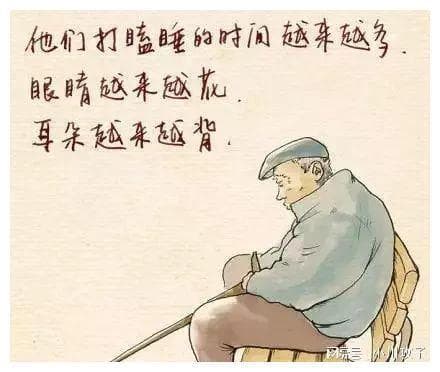 他们打瞌睡的时间越来越多.
眼睛越来越花.
耳朵越来越背.